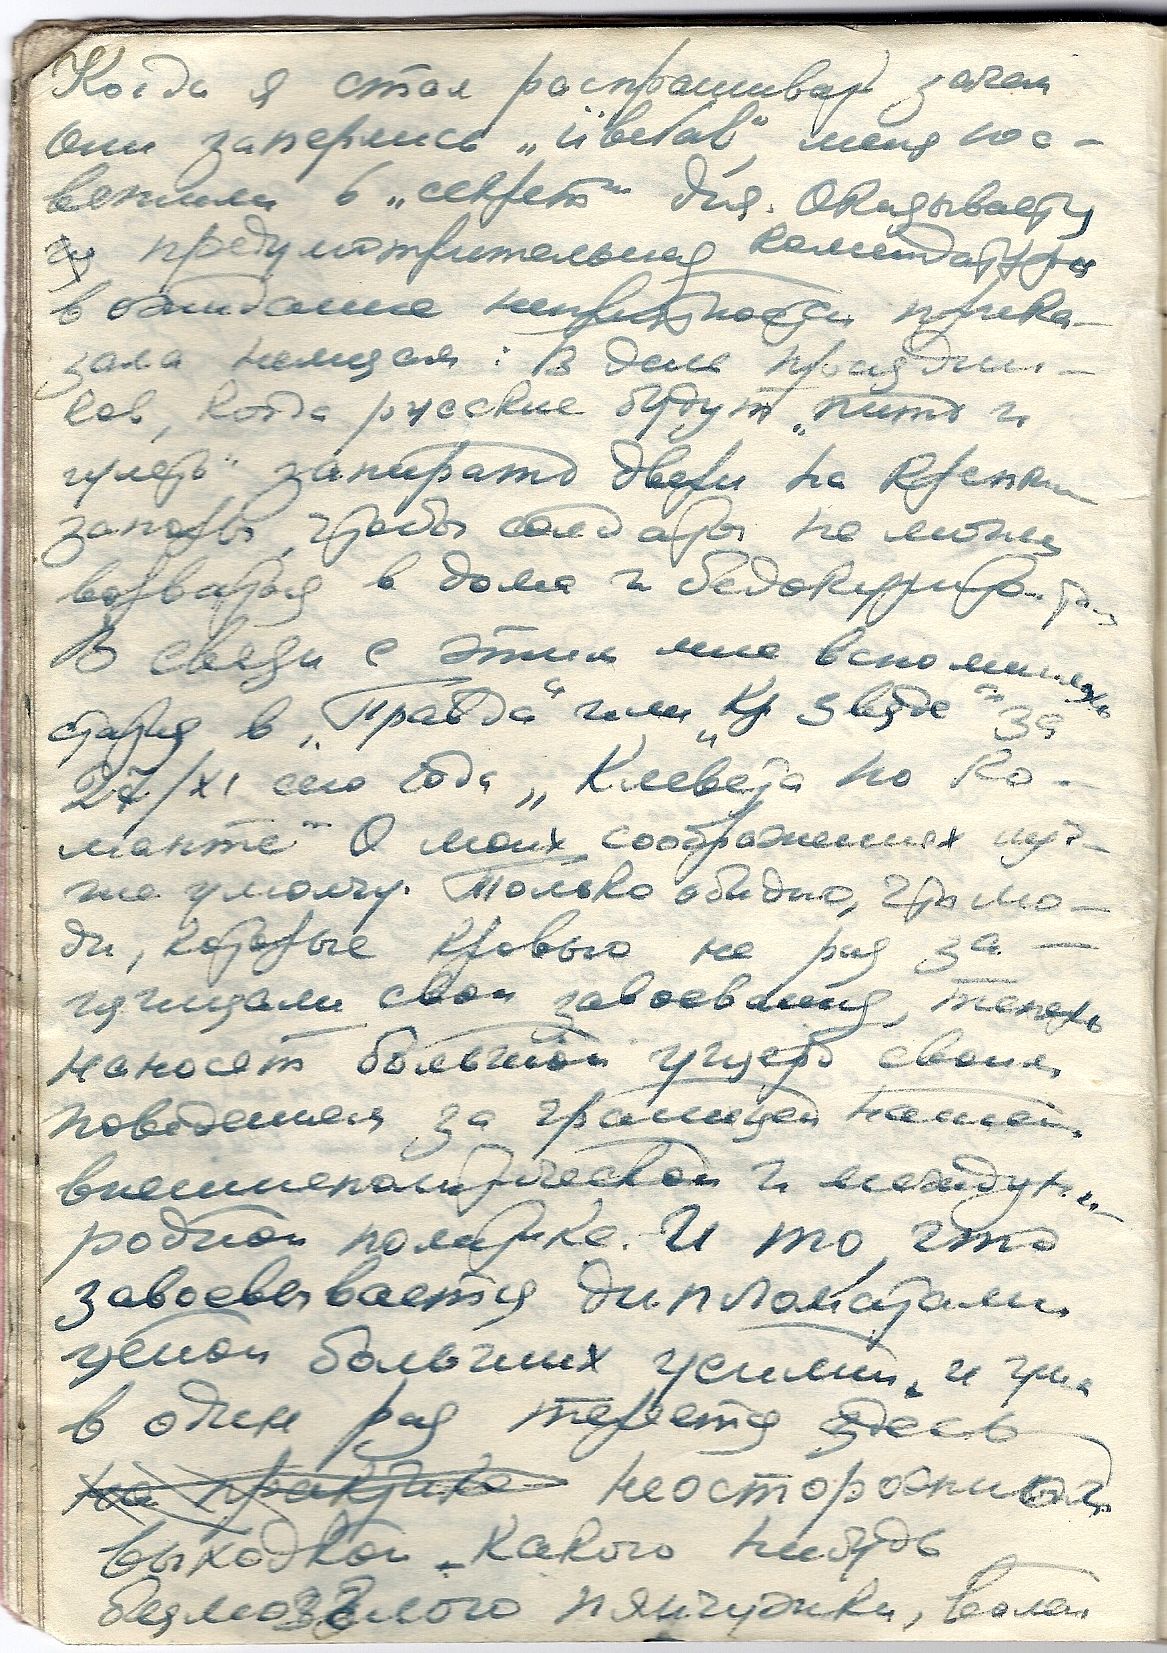 Когда я стал распрашиват зачем
они заперлись „
меня пос-
вятили в „секрет“ дня. Оказывает
ся предусмотрительная комендатура
в ожидание неприятности прика-
зала немцам: В день праздни-
ков, когда русские будут „пить и
гулять“ запирать двери на крепкие
запоры, чтобы солдаты не могли
ворваться в дома и бедокурить там
В связи с этим мне вспомнилась
статья в „Правда“ или „Кр Звезде“ за
27/XI сего года „Клевета по ко-
манте“ О моих соображениях луч-
ше умолчу. Только обидно, что лю-
ди, которые кровью не раз за-
щищали свои завоевания, теперь
наносят большой ущерб своим
поведением за границей нашей
внешнеполитической и междуна-
родной политике. И то, что
завоевывается дипломатами
ценой больших усилий и ума
в один раз теряется здесь
на практике неосторожной
выходкой какого нибудь
безмозглого пянчужки, болва